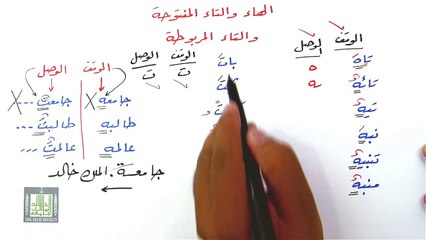 الهاء والتاء المفتوحة
والتاء المربوطة
الوقف الوصل
تاه ه
تائه ه
تيه
نبه
تنبيه
منبه
الوقف الوصل
بات ت ت
الوقف الوصل
جامعه X جامعت X
طالبه طالبت
عالمه عالمت
جامعة الملك خالد